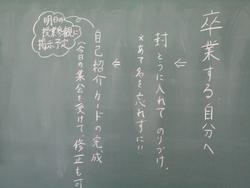 卒業する自分へ
⇓
封とうに入れてのりづけ。
×あて名を忘れずに!!
⇓
自己紹介カードの完成
(今日の集会を受けて、修正も可
明日の
授業参観に
掲示予定